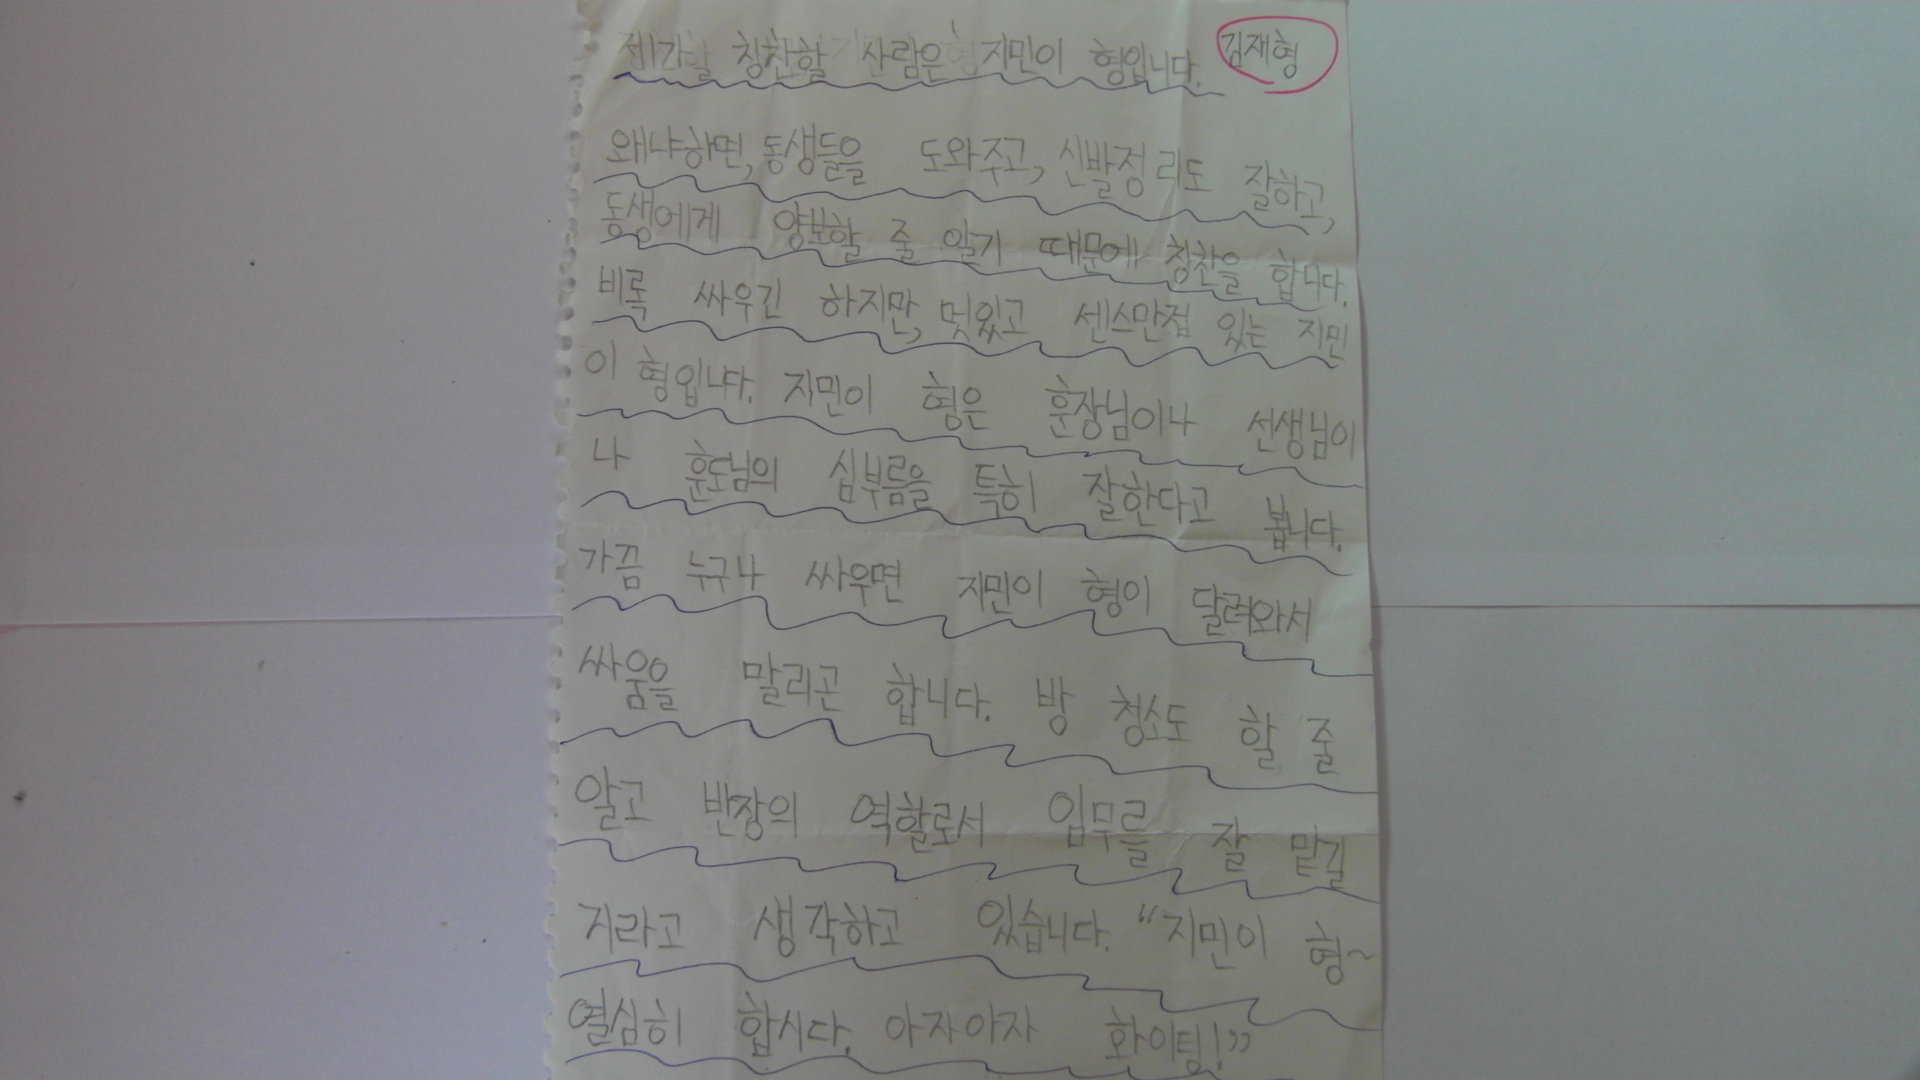 제가 칭찬할 사람은 지민이 형입니다. 김재형
왜냐하면, 동생들을 도와주고, 신발정리도 잘하고,
동생에게 양보할 줄 알기 때문에 칭찬을 합니다.
비록 싸우긴 하지만, 멋있고 센스만점 있는 지민
이 형입니다. 지민이 형은 훈장님이나 선생님이
나 훈도님의 심부름을 특히 잘한다고 봅니다.
가끔 누구나 싸우면 지민이 형이 달려와서
싸움을 말리곤 합니다. 방 청소도 할 줄
알고 반장의 역할로서 임무를 잘 맡길
지라고 생각하고 있습니다. “지민이 형~
열심히 합시다. 아자아자 화이팅!”